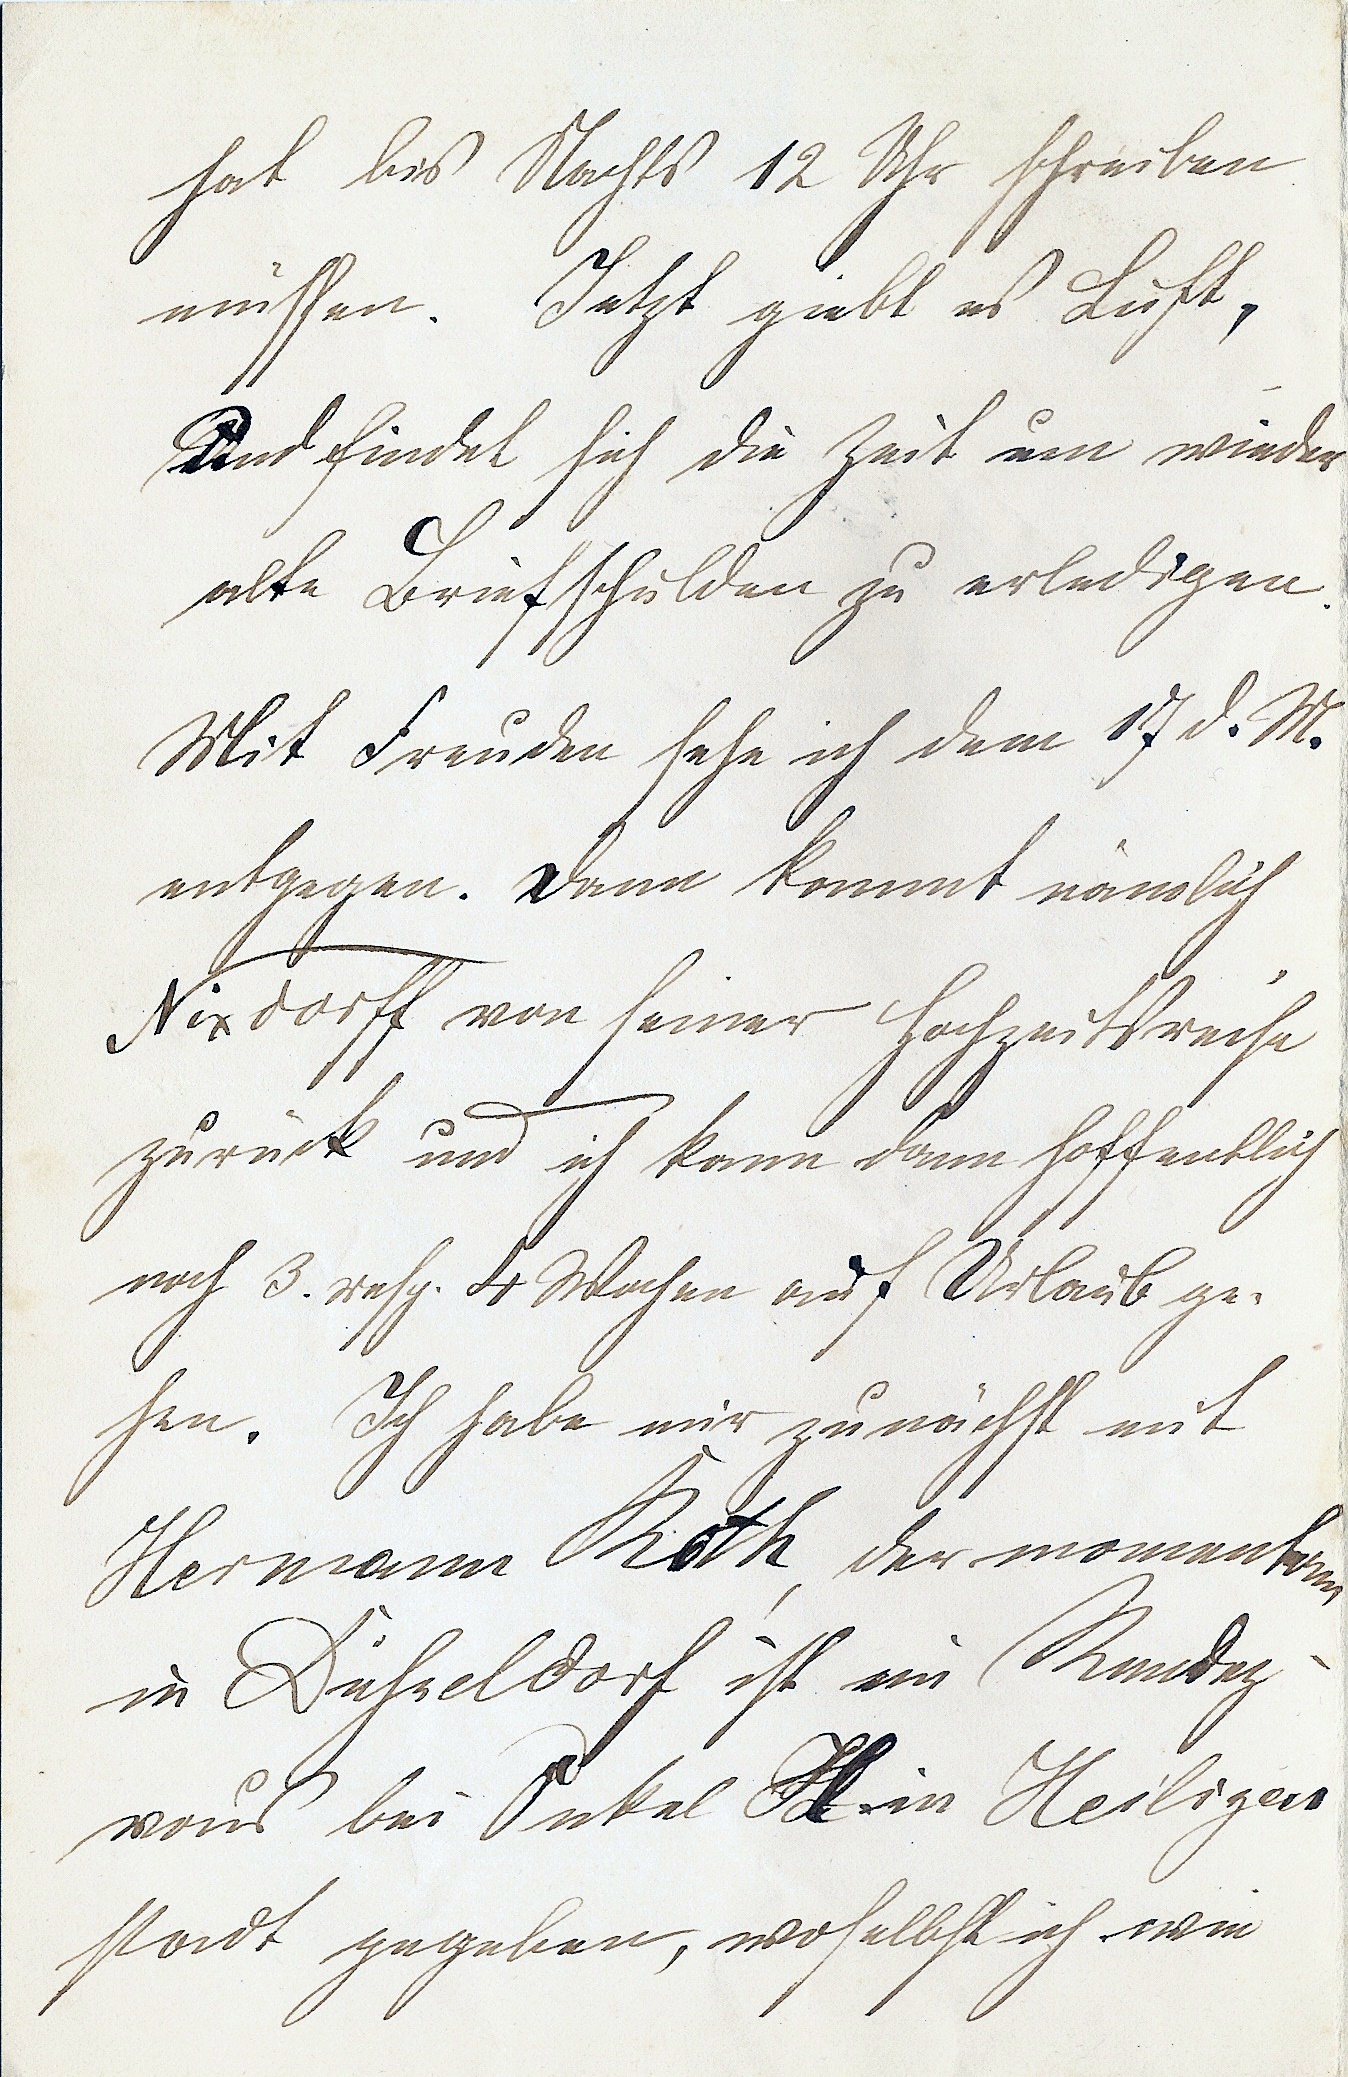 hat bis Nachts 12 Uhr schreiben
müssen. Jetzt giebt es Luft,
und findet sich die Zeit um wieder
alte Briefschulden zu erledigen.
Mit Freuden sehe ich dem 17 d. M.
entgegen. Dann kommt nämlich
Nixdorff von seiner Hochzeitsreise
zurück und ich kann dann hoffentlich
noch 3. resp. 4 Wochen auf Urlaub ge-
hen. Ich habe mir zunächst mit
Hermann Roth, der momentan
in Düsseldorf ist ein Rendez-
vous bei Onkel in Heiligen
stadt gegeben, woselbst ich wie